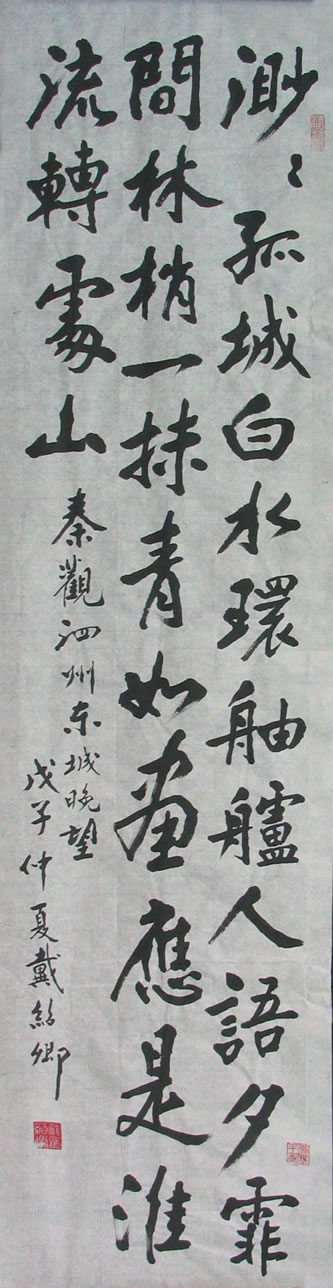 渺〻孤城白水環舳艫人語夕霏
間林梢一抹青如畫應是淮
流轉處山
秦觀泗州东城晚望
戊子仲夏戴紹卿